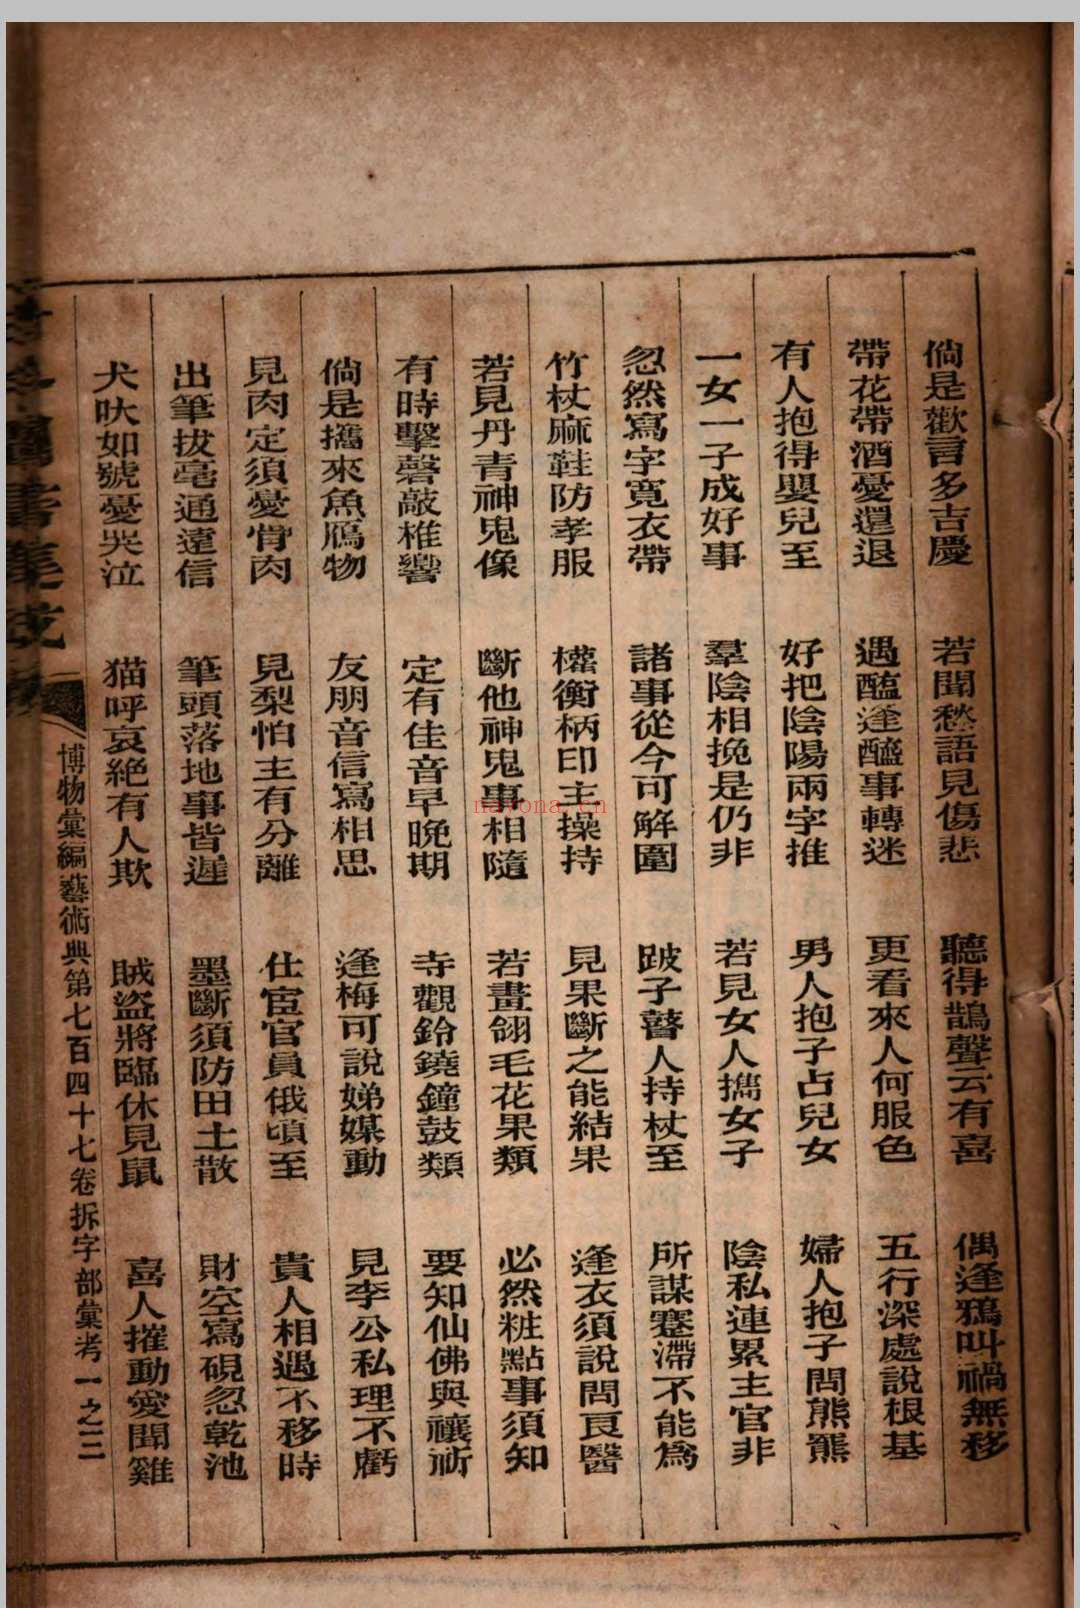 倘是歡言多吉慶　若聞愁語見傷悲　聽得鵲聲云有喜　偶逢鴉叫禍無移
帶花帶酒憂還退　遇醢逢醯事轉迷　更看來人何服色　五行深處說根基
有人抱得嬰兒至　好把陰陽兩字推　男人抱子占兒女　婦人抱子問熊羆
一女一子成好事　羣陰相挽是仍非　若見女人攜女子　陰私連累主官非
忽然寫字寬衣帶　諸事從今可解圍　跛子瞽人持杖至　所謀蹇滯不能爲
竹杖麻鞋防孝服　權衡柄印主操持　見果斷之能結果　逢衣須說問良醫
若見丹青神鬼像　斷他神鬼事相隨　若畫翎毛花果類　必然粧點事須知
有時擊磬敲椎響　定有佳音早晚期　寺觀鈴鐃鐘鼓類　要知仙佛與禳祈
倘是攜來魚鴈物　友朋音信寫相思　逢梅可說娣媒動　見李公私理不虧
見肉定須憂骨肉　見梨怕主有分離　仕宦官員俄頃至　貴人相遇不移時
出筆拔毫通遠信　筆頭落地事皆遲　墨斷須防田土散　財空寫硯忽乾池
犬吠如號憂哭泣　猫呼哀絕有人欺　賊盜將臨休見鼠　喜人摧動愛聞雞
圖書集成
博物彙編藝術典第七百四十七卷拆字部彙考一之三
nayona.cn